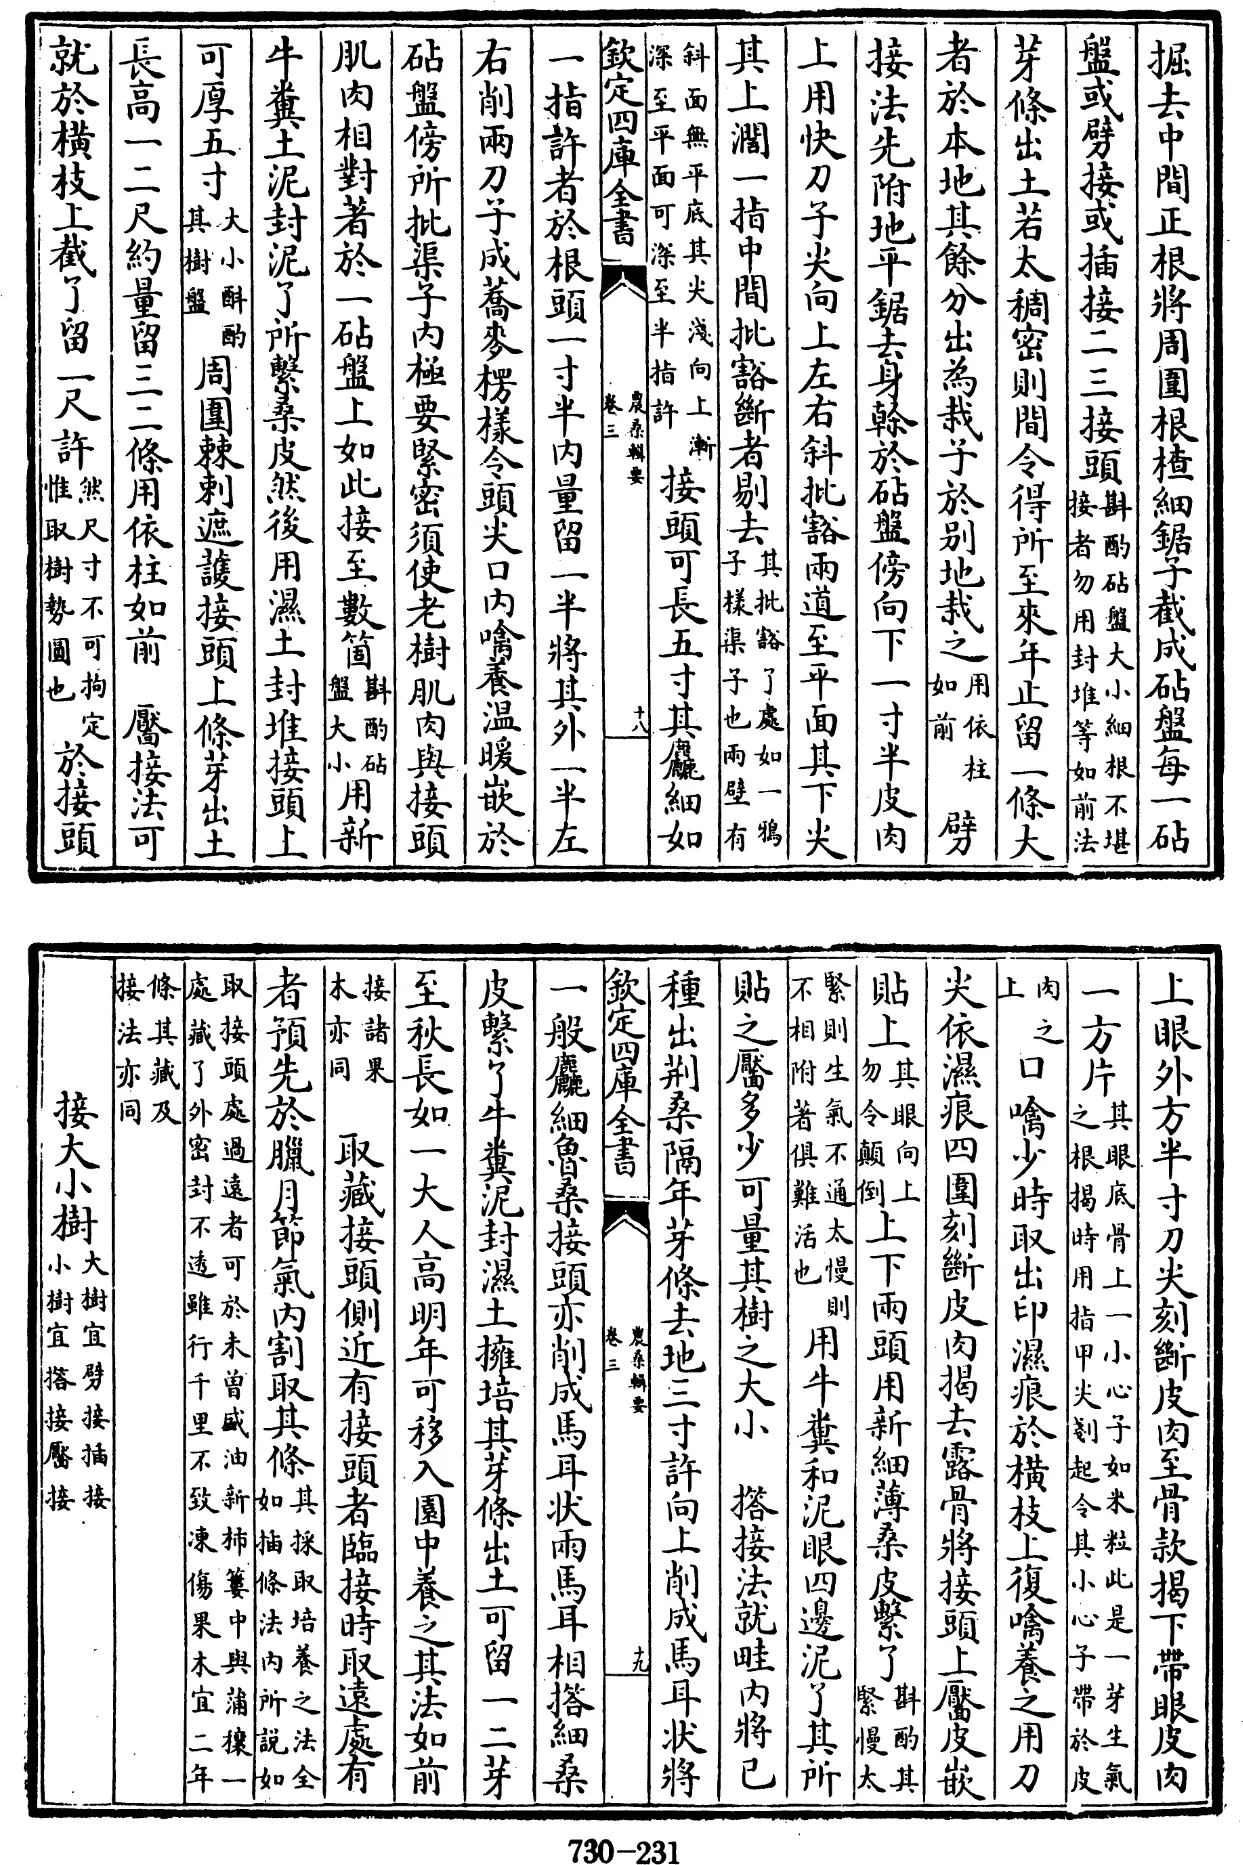 掘去中間正根將周圍根楂細鋸子截成砧盤每一砧
盤或劈接或插接二三接頭斟酌砧盤大小細根不堪
接者勿用封堆等如前法
芽條出土若太稠密則間令得所至來年止留一條大
者於本地其餘分出為栽子於別地栽之用依柱
如前劈
接法先附地平鋸去身榦於砧盤傍向下一寸半皮肉
上用快刀子尖向上左右斜批豁兩道至平面其下尖
其上濶一指中間批豁斷者剔去其批豁了處如一鴉
子樣渠子也兩壁有
斜面無平底其尖淺向上漸
深至平面可深至半指許接頭可長五寸其麤細如
欽定四庫全書
農桑輯要
卷三
十八
一指許者於根頭一寸半內量留一半將其外一半左
右削兩刀子成蕎麥楞樣令頭尖口內噙養溫暖嵌於
砧盤傍所批渠子內極要緊密須使老樹肌肉與接頭
肌肉相對著於一砧盤上如此接至數箇斟酌砧
盤大小用新
牛糞土泥封泥了所繫桑皮然後用濕土封堆接頭上
可厚五寸大小斟酌
其樹盤周圍棘刺遮護接頭上條芽出土
長高一二尺約量留三二條用依柱如前 靨接法可
就於橫枝上截了留一尺許然尺寸不可拘定
惟取樹勢圓也於接頭
上眼外方半寸刀尖刻斷皮肉至骨款揭下帶眼皮肉
一方片其眼底骨上一小心子如米粒此是一芽生氣
之根揭時用指甲尖剜起令其小心子帶於皮
肉之
上口噙少時取出印濕痕於橫枝上復噙養之用刀
尖依濕痕四圍刻斷皮肉揭去露骨將接頭上靨皮嵌
貼上其眼向上
勿令顛倒上下兩頭用新細薄桑皮繫了斟酌其
緊慢太
緊則生氣不通太慢則
不相附著俱難活也用牛糞和泥眼四邊泥了其所
貼之靨多少可量其樹之大小 搭接法就畦內將已
種出荆桑隔年芽條去地三寸許向上削成馬耳狀將
欽定四庫全書
農桑輯要
卷三
十九
一般麤細魯桑接頭亦削成馬耳狀兩馬耳相搭細桑
皮繫了牛糞泥封濕土擁培其芽條出土可留一二芽
至秋長如一大人高明年可移入園中養之其法如前
接諸果
木亦同 取藏接頭側近有接頭者臨接時取遠處有
者預先於臘月節氣內割取其條其採取培養之法全
如插條法內所說如
取接頭處過遠者可於未曾盛油新柿簍中與蒲穰一
處藏了外密封不透雖行千里不致凍傷果木宜二年
條其藏及
接法亦同
接大小樹大樹宜劈接插接
小樹宜搭接靨接
730-231